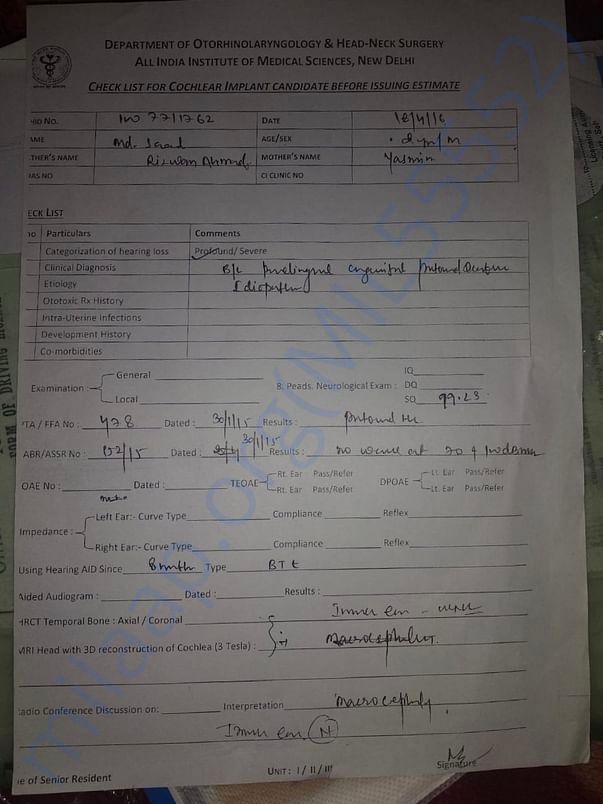 DEPARTMENT OF OTORHINOLARYNGOLOGY & HEAD-NECK SURGERY
ALL INDIA INSTITUTE OF MEDICAL SCIENCES, NEW DELHI
CHECK LIST FOR COCHLEAR IMPLANT CANDIDATE BEFORE ISSUING ESTIMATE
HID NO. DATE
AME Md. AGE/SEX
THER'S NAME Rizwan Ahmad MOTHER'S NAME Yasmin
AS NO CI CLINIC NO
ECK LIST
Particulars Comments
Categorization of hearing loss Profound/ Severe
Clinical Diagnosis B/L prelingual congenital profound
Etiology Idiopathic
Ototoxic Rx History
Intra-Uterine Infections
Development History
Co-morbidities
Examination: General
Local
B. Peads. Neurological Exam : IQ
DQ
SQ 99.23
TA / FFA No : 478 Dated : 30/1/15 Results : Profound HL
ABR/ASSR No : 152/15 Dated : 30/1/15 Results : no wave at 70
OAE No : Dated : TEOAE Rt. Ear Pass/Refer DPOAE Lt. Ear Pass/Refer
Rt. Ear Pass/Refer Lt. Ear Pass/Refer
Impedance : Left Ear:- Curve Type Compliance Reflex
Right Ear:- Curve Type Compliance Reflex
Using Hearing AID Since 8 mnth Type BTE
Aided Audiogram : Dated : Results :
HRCT Temporal Bone : Axial / Coronal Inner ear -
MRI Head with 3D reconstruction of Cochlea (3 Tesla) :
Radio Conference Discussion on: Interpretation macrocephaly.
Inner ear N
Signature
UNIT: I / II / III
e of Senior Resident
milaap.org(MIL55552)